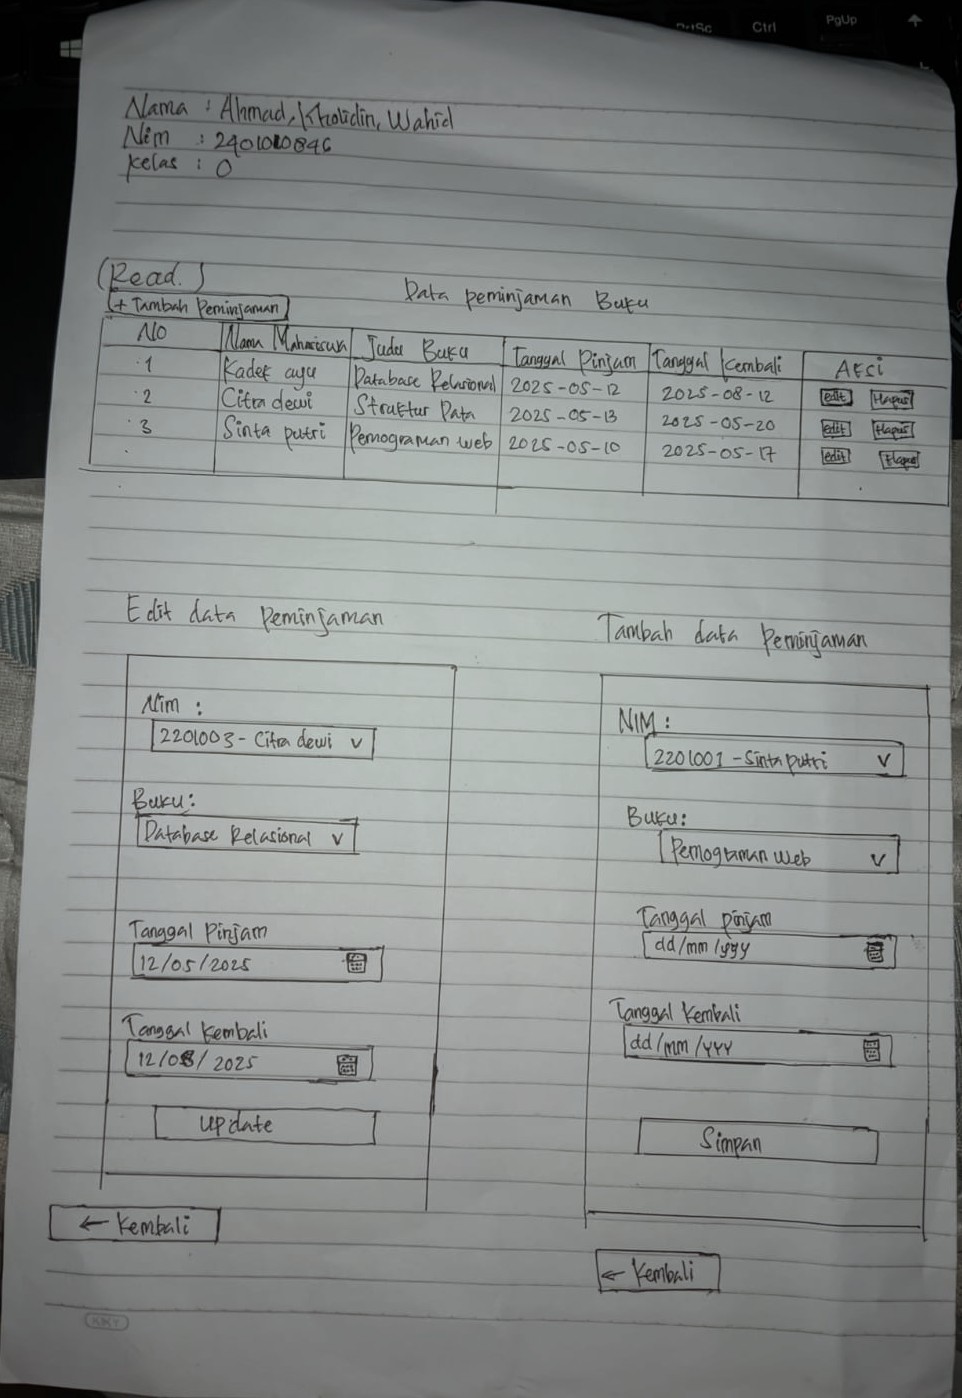 PrtSc Ctrl PgUp
Nama : Ahmad, Kholidin, Wahid
Nim : 2401010846
Kelas : O
(Read.)
+ Tambah Peminjaman
Data peminjaman Buku
NO Nama Mahasiswa Judul Buku Tanggal Pinjam Tanggal Kembali Aksi
1 Kadek ayu Database Relasional 2025-05-12 2025-08-12 edit Hapus
2 Citra dewi Struktur Data 2025-05-13 2025-05-20 edit Hapus
3 Sinta putri Pemograman web 2025-05-10 2025-05-17 edit Hapus
Edit data Peminjaman
Nim :
2201003 - Citra dewi v
Buku:
Database Relasional v
Tanggal Pinjam
12/05/2025
Tanggal Kembali
12/08/2025
update
← Kembali
Tambah data Peminjaman
NIM :
2201001 - Sinta putri v
Buku:
Pemograman web v
Tanggal pinjam
dd/mm/yyy
Tanggal Kembali
dd/mm/yyy
Simpan
← Kembali
KKY